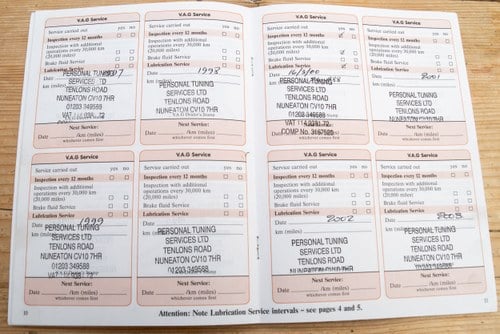 V.A.G Service
Service carried out yes no
Inspection every 12 months
Inspection with additional
operations every 30,000 km
(20,000 miles)
Brake fluid Service
Lubrication Service
Date 1997
km (miles)
PERSONAL TUNING
SERVICES LTD
TENLONS ROAD
NUNEATON CV10 7HR
01203 349588
Next Service:
Date /km (miles)
whichever comes first
V.A.G Service
Service carried out yes no
Inspection every 12 months
Inspection with additional
operations every 30,000 km
(20,000 miles)
Brake fluid Service
Lubrication Service
Date 1998
km (miles)
PERSONAL TUNING
SERVICES LTD
TENLONS ROAD
NUNEATON CV10 7HR
01203 349588
Next Service:
Date /km (miles)
whichever comes first
V.A.G Service
Service carried out yes no
Inspection every 12 months
Inspection with additional
operations every 30,000 km
(20,000 miles)
Brake fluid Service
Lubrication Service
Date
km
PERSONAL TUNING
SERVICES LTD
TENLONS ROAD
NUNEATON CV10 7HR
01203 349588
Next Service:
Date /km (miles)
whichever comes first
V.A.G Service
Service carried out yes no
Inspection every 12 months
Inspection with additional
operations every 30,000 km
(20,000 miles)
Brake fluid Service
Lubrication Service
Date 2001
km
PERSONAL TUNING
SERVICES LTD
TENLONS ROAD
NUNEATON CV10 7HR
01203 349588
Next Service:
Date /km (miles)
whichever comes first
V.A.G Service
Service carried out yes no
Inspection every 12 months
Inspection with additional
operations every 30,000 km
(20,000 miles)
Brake fluid Service
Lubrication Service
Date 1999
km (miles)
PERSONAL TUNING
SERVICES LTD
TENLONS ROAD
NUNEATON CV10 7HR
01203 349588
Date /km (miles)
whichever comes first
V.A.G Service
Service carried out yes no
Inspection every 12 months
Inspection with additional
operations every 30,000 km
(20,000 miles)
Brake fluid Service
Lubrication Service
Date
km (miles)
PERSONAL TUNING
SERVICES LTD
TENLONS ROAD
NUNEATON CV10 7HR
01203 349588
Date /km (miles)
whichever comes first
V.A.G Service
Service carried out yes no
Inspection every 12 months
Inspection with additional
operations every 30,000 km
(20,000 miles)
Brake fluid Service
Lubrication Service
Date 2002
km (miles)
PERSONAL TUNING
SERVICES LTD
TENLONS ROAD
Date /km (miles)
whichever comes first
V.A.G Service
Service carried out yes no
Inspection every 12 months
Inspection with additional
operations every 30,000 km
(20,000 miles)
Brake fluid Service
Lubrication Service
Date 2003
km
PERSONAL TUNING
SERVICES LTD
TENLONS ROAD
Date /km (miles)
whichever comes first
10
Attention: Note Lubrication Service intervals – see pages 4 and 5.
11